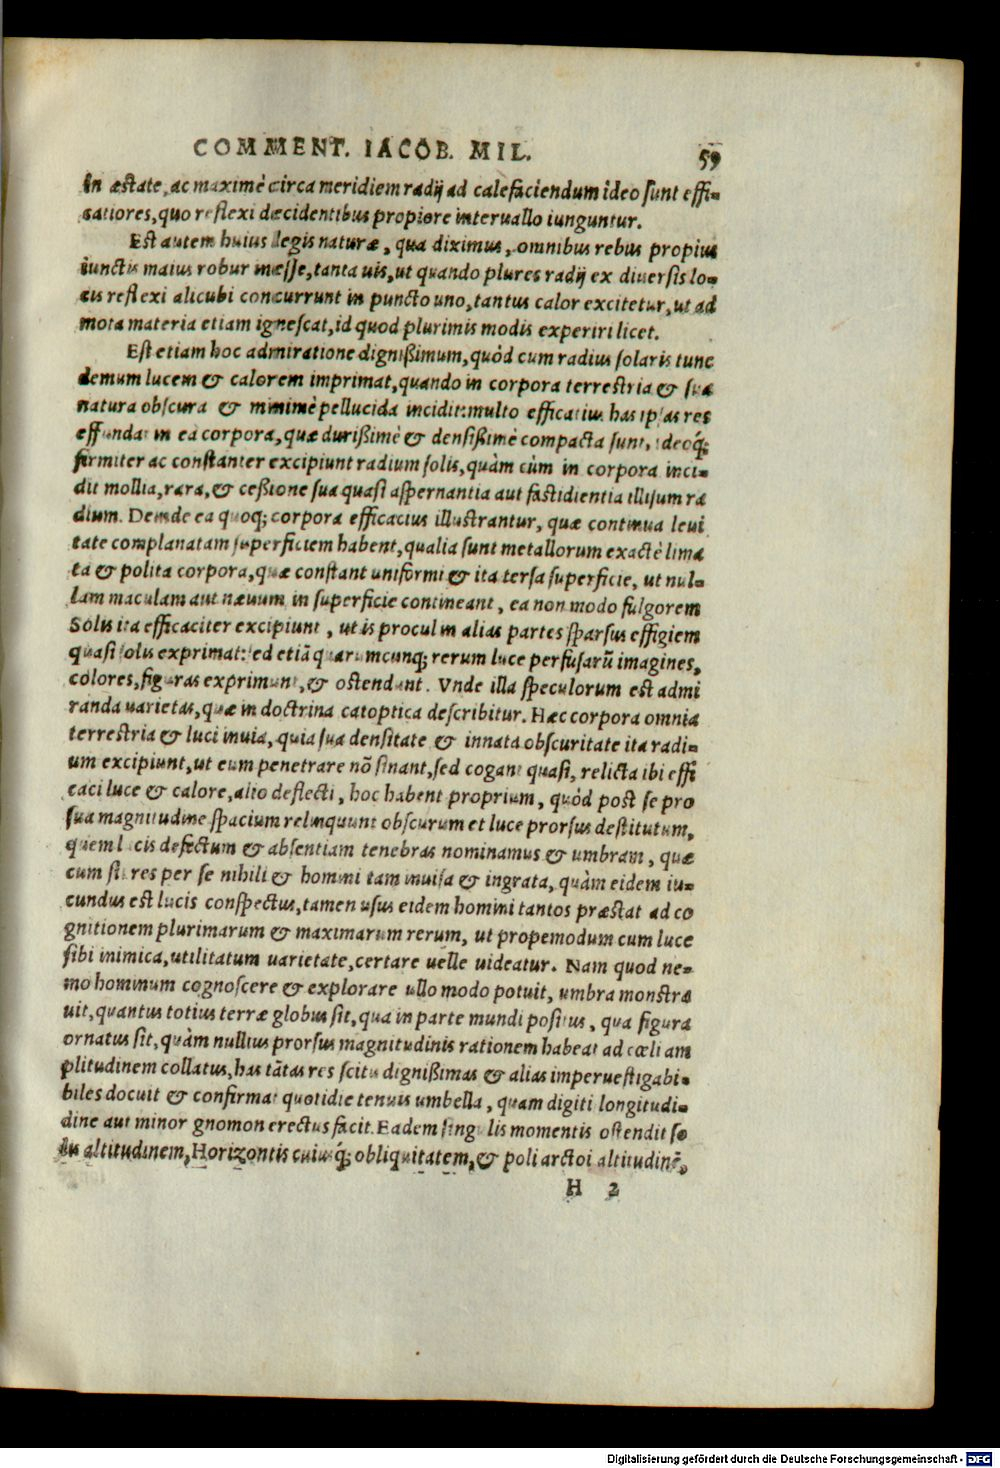 COMMENT. IACOB. MIL. 59
In æstate, ac maximè circa meridiem radij ad calefaciendum ideo sunt effi-
catiores, quo reflexi decidentibus propiore interuallo iunguntur.
Est autem huius legis naturæ, qua diximus, omnibus rebus propius
iunctis maius robur inesse, tanta uis, ut quando plures radij ex diuersis lo-
cis reflexi alicubi concurrunt in puncto uno, tantus calor excitetur, ut ad
mota materia etiam ignescat, id quod plurimis modis experiri licet.
Est etiam hoc admiratione dignißimum, quòd cum radius solaris tunc
demum lucem & calorem imprimat, quando in corpora terrestria & sua
natura obscura & minimè pellucida incidit: multo efficatius has ipsas res
effundat in ea corpora, quæ durißimè & densißimè compacta sunt, ideoq́;
firmiter ac constanter excipiunt radium solis, quàm cùm in corpora inci-
dit mollia, rara, & ceßione sua quasi aspernantia aut fastidientia illisum ra
dium. Deinde ea quoq; corpora efficacius illustrantur, quæ continua leui
tate complanatam superficiem habent, qualia sunt metallorum exactè lima
ta & polita corpora, quæ constant uniformi & ita tersa superficie, ut nul-
lam maculam aut næuum in superficie contineant, ea non modo fulgorem
Solis ita efficaciter excipiunt, ut is procul in alias partes sparsus effigiem
quasi solis exprimat: sed etiã quarumcunq; rerum luce perfusarũ imagines,
colores, figuras exprimunt, & ostendunt. Vnde illa speculorum est admi
randa uarietas, quæ in doctrina catoptica describitur. Hæc corpora omnia
terrestria & luci inuia, quia sua densitate & innata obscuritate ita radi-
um excipiunt, ut eum penetrare nõ sinant, sed cogant quasi, relicta ibi effi
caci luce & calore, alio deflecti, hoc habent proprium, quòd post se pro
sua magnitudine spacium relinquunt obscurum et luce prorsus destitutum,
quem lucis defectum & absentiam tenebras nominamus & umbram, quæ
cum sit res per se nihili & homini tam inuisa & ingrata, quàm eidem iu-
cundus est lucis conspectus, tamen usus eidem homini tantos præstat ad co
gnitionem plurimarum & maximarum rerum, ut propemodum cum luce
sibi inimica, utilitatum uarietate, certare uelle uideatur. Nam quod ne-
mo hominum cognoscere & explorare ullo modo potuit, umbra monstra
uit, quantus totius terræ globus sit, qua in parte mundi positus, qua figura
ornatus sit, quàm nullius prorsus magnitudinis rationem habeat ad cœli am
plitudinem collatus, has tãtas res scitu dignißimas & alias imperuestigabi-
biles docuit & confirmat quotidie tenuis umbella, quam digiti longitudi-
dine aut minor gnomon erectus facit. Eadem singulis momentis ostendit so
lis altitudinem, Horizontis cuiusq́; obliquitatem, & poli arctoi altitudinē,
H 2
Digitalisierung gefördert durch die Deutsche Forschungsgemeinschaft - DFG